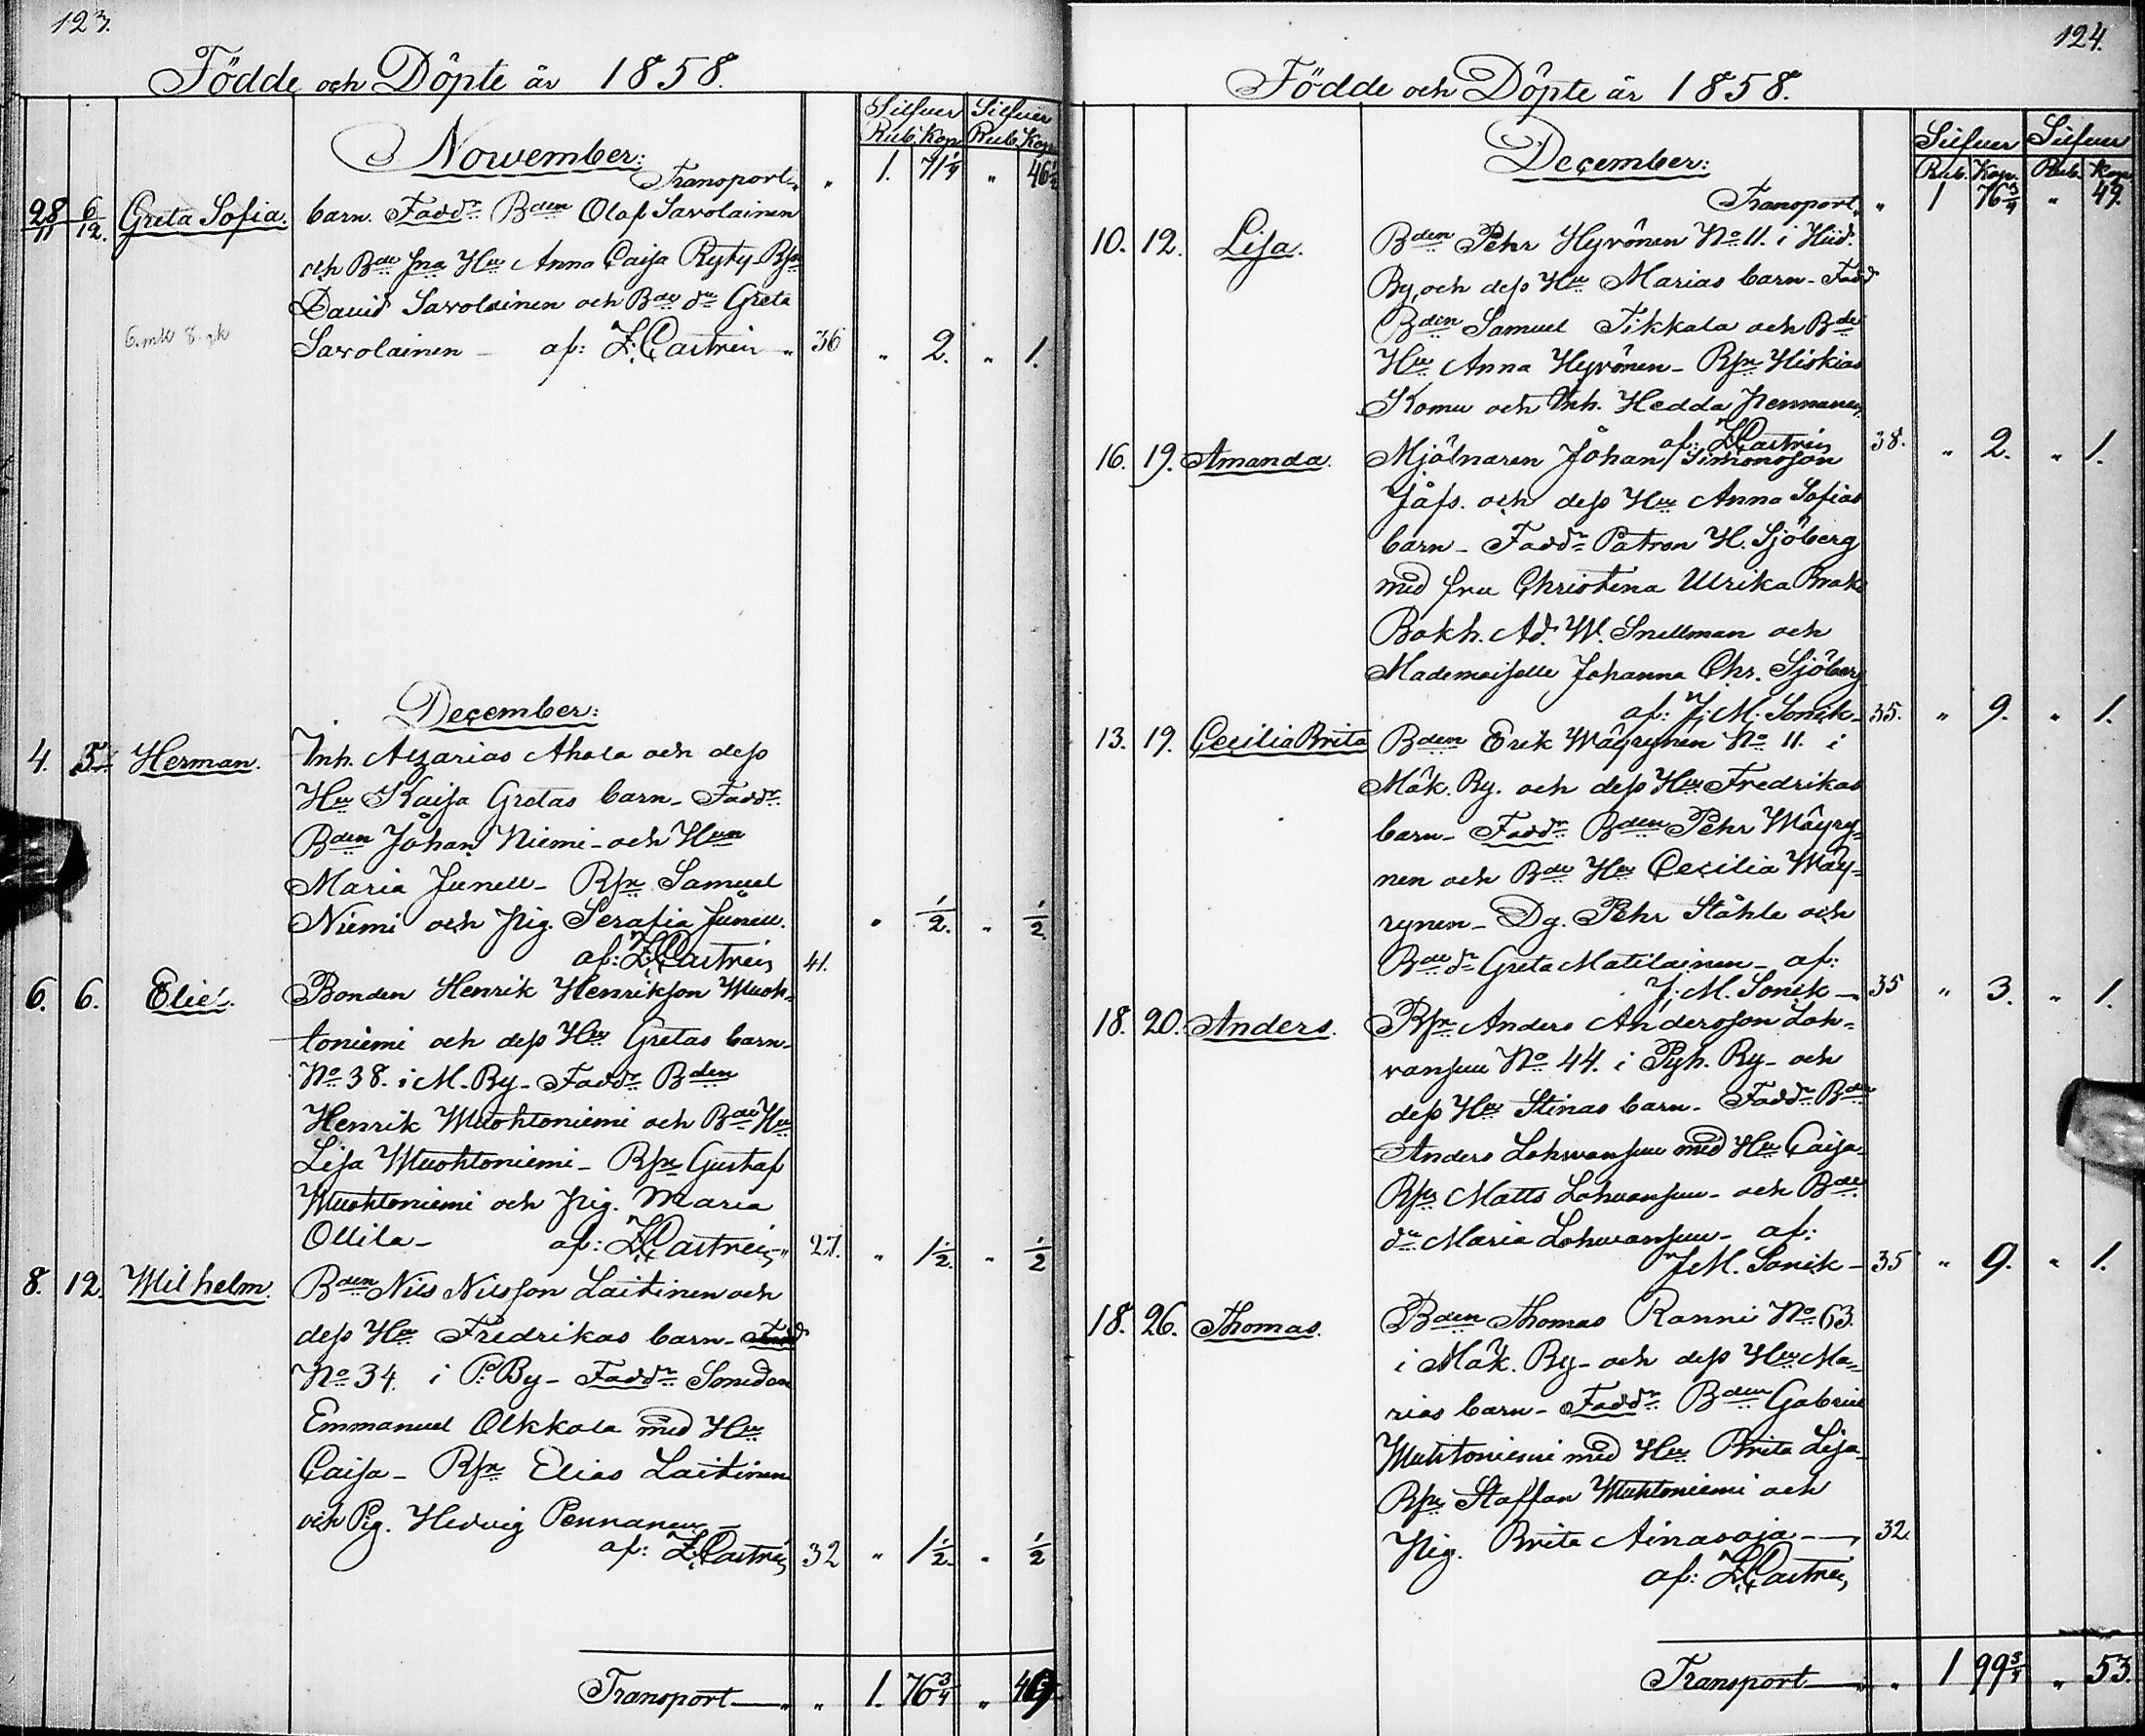 123.
Födde och Döpte år 1858.
Silfver Silfver
Rub. Kop. Rub. Kop.
November:
Transport „ „ 1. 71 1/4 „ 46 1/2
28/11 6/12. Greta Sofia. barn. Faddr Bden Olof Savolainen
och Bde Hu Anna Caisa Ryty Dr
David Savolainen och Bde dr Greta
6. mk 8. gk Savolainen – af: Z. Castrén „ 36 „ 2. „ 1.
December:
4. 5. Herman. Inh. Azarias Ahola och dess
Hu Kaisa Gretas barn – Faddr
Bden Johan Niemi – och Hun
Maria Junell – Dr Samuel
Niemi och Pig. Serafia Junell. „ 1/2. „ 1/2
af: Z. Castrén 41.
6. 6. Elie. Bonden Henrik Henriksson Muoh-
toniemi och dess Hu Gretas barn –
No 38. i M. By – Faddr Bden
Henrik Muohtoniemi och Bde Hu
Lisa Muohtoniemi – Dr Gustaf
Muohtoniemi och Pig. Maria
Ollila – af: Z. Castrén „ 27. „ 1 1/2. „ 1/2
8. 12. Wilhelm. Bden Nils Nilsson Laitinen och
dess Hu Fredrikas barn – Fadd
No 34. i P. By – Faddr Smeden
Emmanuel Olkkola med Hu
Caisa – Dr Elias Laitinen
och Pig. Hedvig Pennanen –
af: Z. Castrén 32 „ 1 1/2. „ 1/2
Transport „ „ 1. 76 3/4 „ 49
124.
Födde och Döpte år 1858.
Silfver Silfver
Rub. Kop. Rub. Kop.
December:
Transport „ „ 1 76 3/4 „ 49.
10. 12. Lisa. Bden Pehr Hyvönen No 11. i Hid.
By, och dess Hu Marias barn – Fadd
Bden Samuel Tikkala och Bde
Hu Anna Hyvönen – Dr Hiskias
Komu och Inh. Hedda Pennanen
af: Z. Castrén 38. „ 2. „ 1.
16. 19. Amanda. Mjölnaren Johan Simonsson
Jåfs. och dess Hu Anna Sofias
barn – Faddr Patron H. Sjöberg
med fru Christina Ulrika
Bokh. Ad. W. Snellman och
Mademoiselle Johanna Chr. Sjöberg
af: J. M. Sonck – 35. „ 9. „ 1.
13. 19. Cecilia Brita Bden Erik Mäyrynen No 11. i
Mäk. By. och dess Hu Fredrikas
barn – Faddr Bden Pehr Mäyry-
nen och Bde Hu Cecilia Mäy-
rynen – Dg. Pehr Ståhle och
Bde dr Greta Matilainen – af:
J. M. Sonck – 35 „ 3. „ 1.
18. 20. Anders. Dr Anders Andersson Loh-
vansuu No 44. i Pyh. By – och
dess Hu Stinas barn – Faddr Bden
Anders Lohvansuu med Hu Caisa –
Dr Matts Lohvansuu – och Bde
dr Maria Lohvansuu – af:
J. M. Sonck – 35 „ 9. „ 1.
18. 26. Thomas. Bden Thomas Ranni No 63.
i Mäk. By – och dess Hu Ma-
rias barn – Faddr Bden Gabriel
Muhtoniemi med Hu Brita Lisa –
Dr Staffan Muhtoniemi och
Pig. Brita Ainasoja – 32.
af: Z. Castrén
Transport „ „ 1 99 3/4 „ 53.